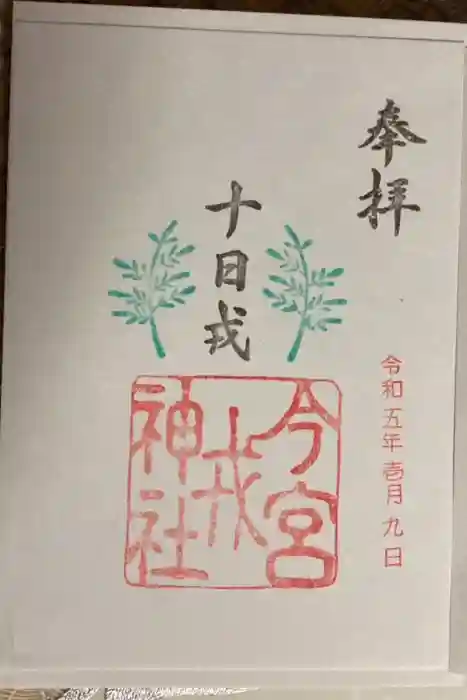 奉拝
十日戎
今宮
戎
神社
令和五年壱月九日